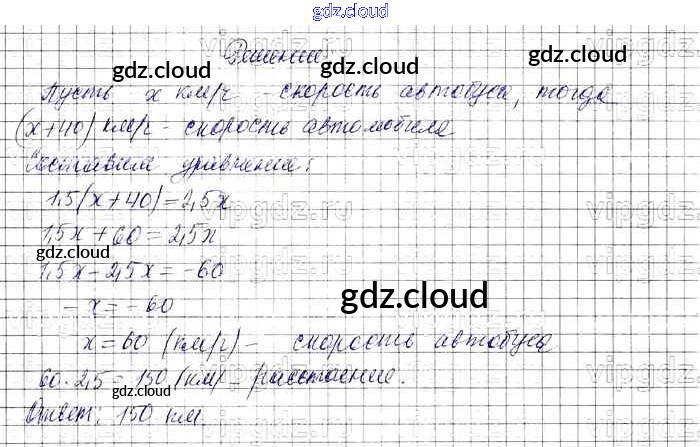 gdz.cloud
Решение
gdz.cloud gdz.cloud
Пусть х км/ч - скорость автобуса, тогда
(х+40) км/ч - скорость автомобиля
gdz.cloud
Составим уравнение:
1,5(х+40)=2,5х
vipgdz.ru
1,5х+60=2,5х
gdz.cloud
1,5х-2,5х=-60
-х=-60
gdz.cloud
х=60 (км/ч) - скорость автобуса
60·2,5=150 (км) - расстояние.
gdz.cloud gdz.cloud
Ответ: 150 км.